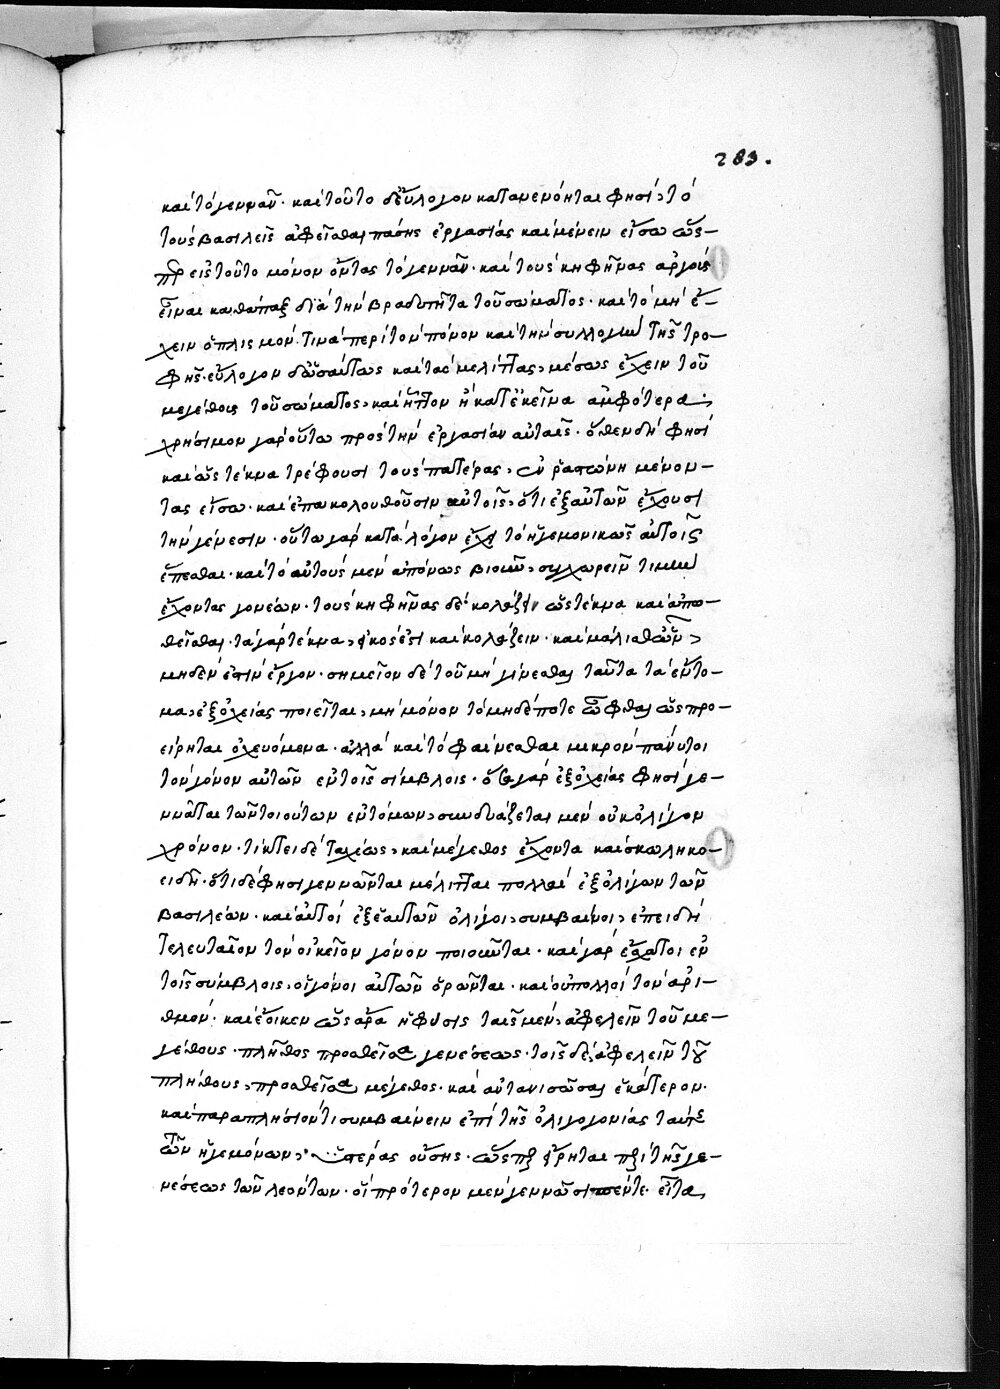 283.
καὶ τὸ γεννᾶν· καὶ τοῦτο δ' εὔλογον κατανενόηται φησὶ, τὸ
τοὺς βασιλεῖς ἀφεῖσθαι πάσης ἐργασίας καὶ μένειν εἴσω ὥς-
περ εἰς τοῦτο μόνον ὄντας τὸ γεννᾶν· καὶ τοὺς κηφῆνας ἀργοὺς
εἶναι καθάπαξ διὰ τὴν βραδυτῆτα τοῦ σώματος· καὶ τὸ μὴ ἔ-
χειν ὁπλισμόν τινα περὶ τὸν πόνον καὶ τὴν συλλογὴν τῆς τρο-
φῆς· εὔλογον δ' ὡσαύτως καὶ τὰς μελίττας, μέσως ἔχειν τοῦ
μεγέθους τοῦ σώματος, καὶ ἧττον ἢ κατ' ἐκεῖνα ἀμφότερα,
χρήσιμον γὰρ οὕτω πρὸς τὴν ἐργασίαν αὐταῖς· ὅθεν δή φησι
καὶ ὡς τέκνα τρέφουσι τοὺς πατέρας, ἐν ῥαστώνη μένον-
τας εἴσω· καὶ ἐπακολουθοῦσιν αὐτοῖς, ὅτι ἐξ αὐτῶν ἔχουσι
τὴν γένεσιν· οὕτω γὰρ κατὰ λόγον ἔχει τὸ ἡγεμονικῶς αὐτοῖς
ἕπεσθαι· καὶ τὸ αὐτοὺς μὲν ἀπόνως βιοῦν, συγχωρεῖν τιμὴν
ἔχοντας γονέων· τοὺς κηφῆνας δὲ κολάζειν ὡς τέκνα καὶ ἀπω-
θεῖσθαι· τὰ γὰρ τέκνα, εἰκός ἐστι καὶ κολάζειν· καὶ μάλιστα ὧν,
μηδέν ἐστιν ἔργον· σημεῖον δὲ τοῦ μὴ γίνεσθαι ταῦτα τὰ ἔντο-
μα, ἐξ ὀχείας ποιεῖται, μὴ μόνον τὸ μηδέποτε ὦφθαι ὡς προ-
είρηται ὀχευόμενα· ἀλλὰ καὶ τὸ φαίνεσθαι μικρὸν πάνυ τοι
τὸν γόνον αὐτῶν ἐν τοῖς σίμβλοις· ὅσα γὰρ ἐξ ὀχείας φησὶ γε-
ννᾶται τῶν τοιούτων ἐντόμων, συνδυάζεται μὲν οὐκ ὀλίγον
χρόνον· τίκτει δὲ ταχέως, καὶ μέγεθος ἔχοντα καὶ σκωληκο-
ειδῆ· ὅτι δέ φησι γεννῶνται μέλιτται πολλαὶ ἐξ ὀλίγων τῶν
βασιλέων· καὶ αὐτοὶ ἐξ ἑαυτῶν ὀλίγοι, συμβαίνει, ἐπειδὴ
τελευταῖον τὸν οἰκεῖον γόνον ποιοῦνται· καὶ γὰρ ἔσχατοι ἐν
τοῖς σύμβλοις, οἱ γόνοι αὐτῶν ὁρῶνται· καὶ οὐ πολλοὶ τὸν ἀρι-
θμόν· καὶ ἔοικεν ὡς ἄρα ἡ φύσις ταῖς μὲν, ἀφελεῖν τοῦ με-
γέθους· πλῆθος προσθεῖσα γενέσεως· τοῖς δὲ, ἀφελεῖν τοῦ
πλήθους, προσθεῖσα μέγεθος· καὶ ἀντανισῶσαι ἑκάτερον·
καὶ παραπλήσιόν τι συμβαίνειν ἐπὶ τῆς ὀλιγογονίας ταύτης
τῶν ἡγεμόνων, ὑστέρας οὔσης· ὥσπερ εἴρηται περὶ τῆς γε-
νέσεως τῶν λεόντων· οἳ πρότερον μὲν γεννῶσι πέντε· εἶτα,